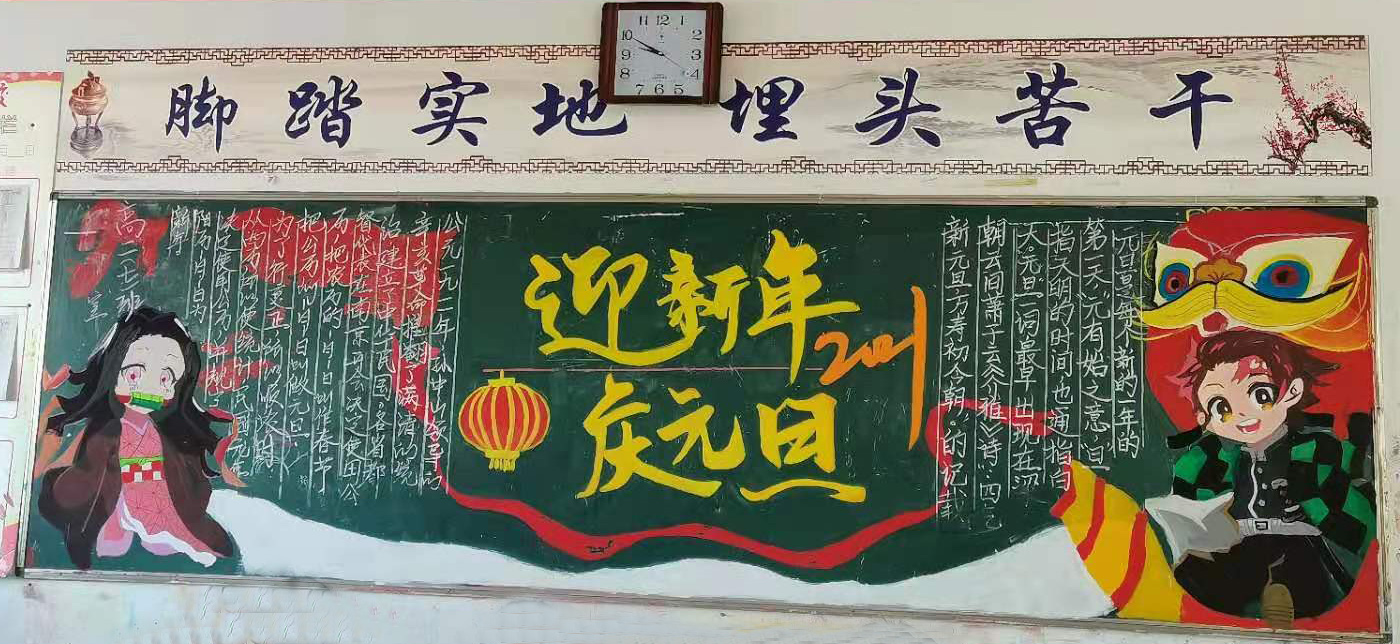 脚踏实地 埋头苦干
11 12 1
10 2
9 3
8 4
7 6 5
迎新年
2021
庆元旦
元旦是每年新的一年的
第一天“元”有始之意“旦”
指天明的时间也通指白
天“元旦”一词最早出现在
朝云间萧子云《介雅》诗“四
新元旦万寿初今朝”的记载
公元一九一一年孙中山领导的
辛亥革命推翻了满清的统
治建立了中华民国各省都
督代表在南京开会决定使用公
历把农历的一月一日叫作春节
把公历的1月1日叫做元旦
为了行夏正所以顺农时
从西历所以便统计民国元年
决定使用公历
阳历1月1日为
新年
高二七班